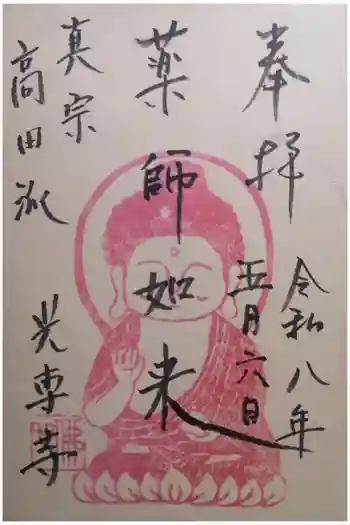 奉拝
令和八年
五月六日
薬師如来
真宗
高田派
光専寺